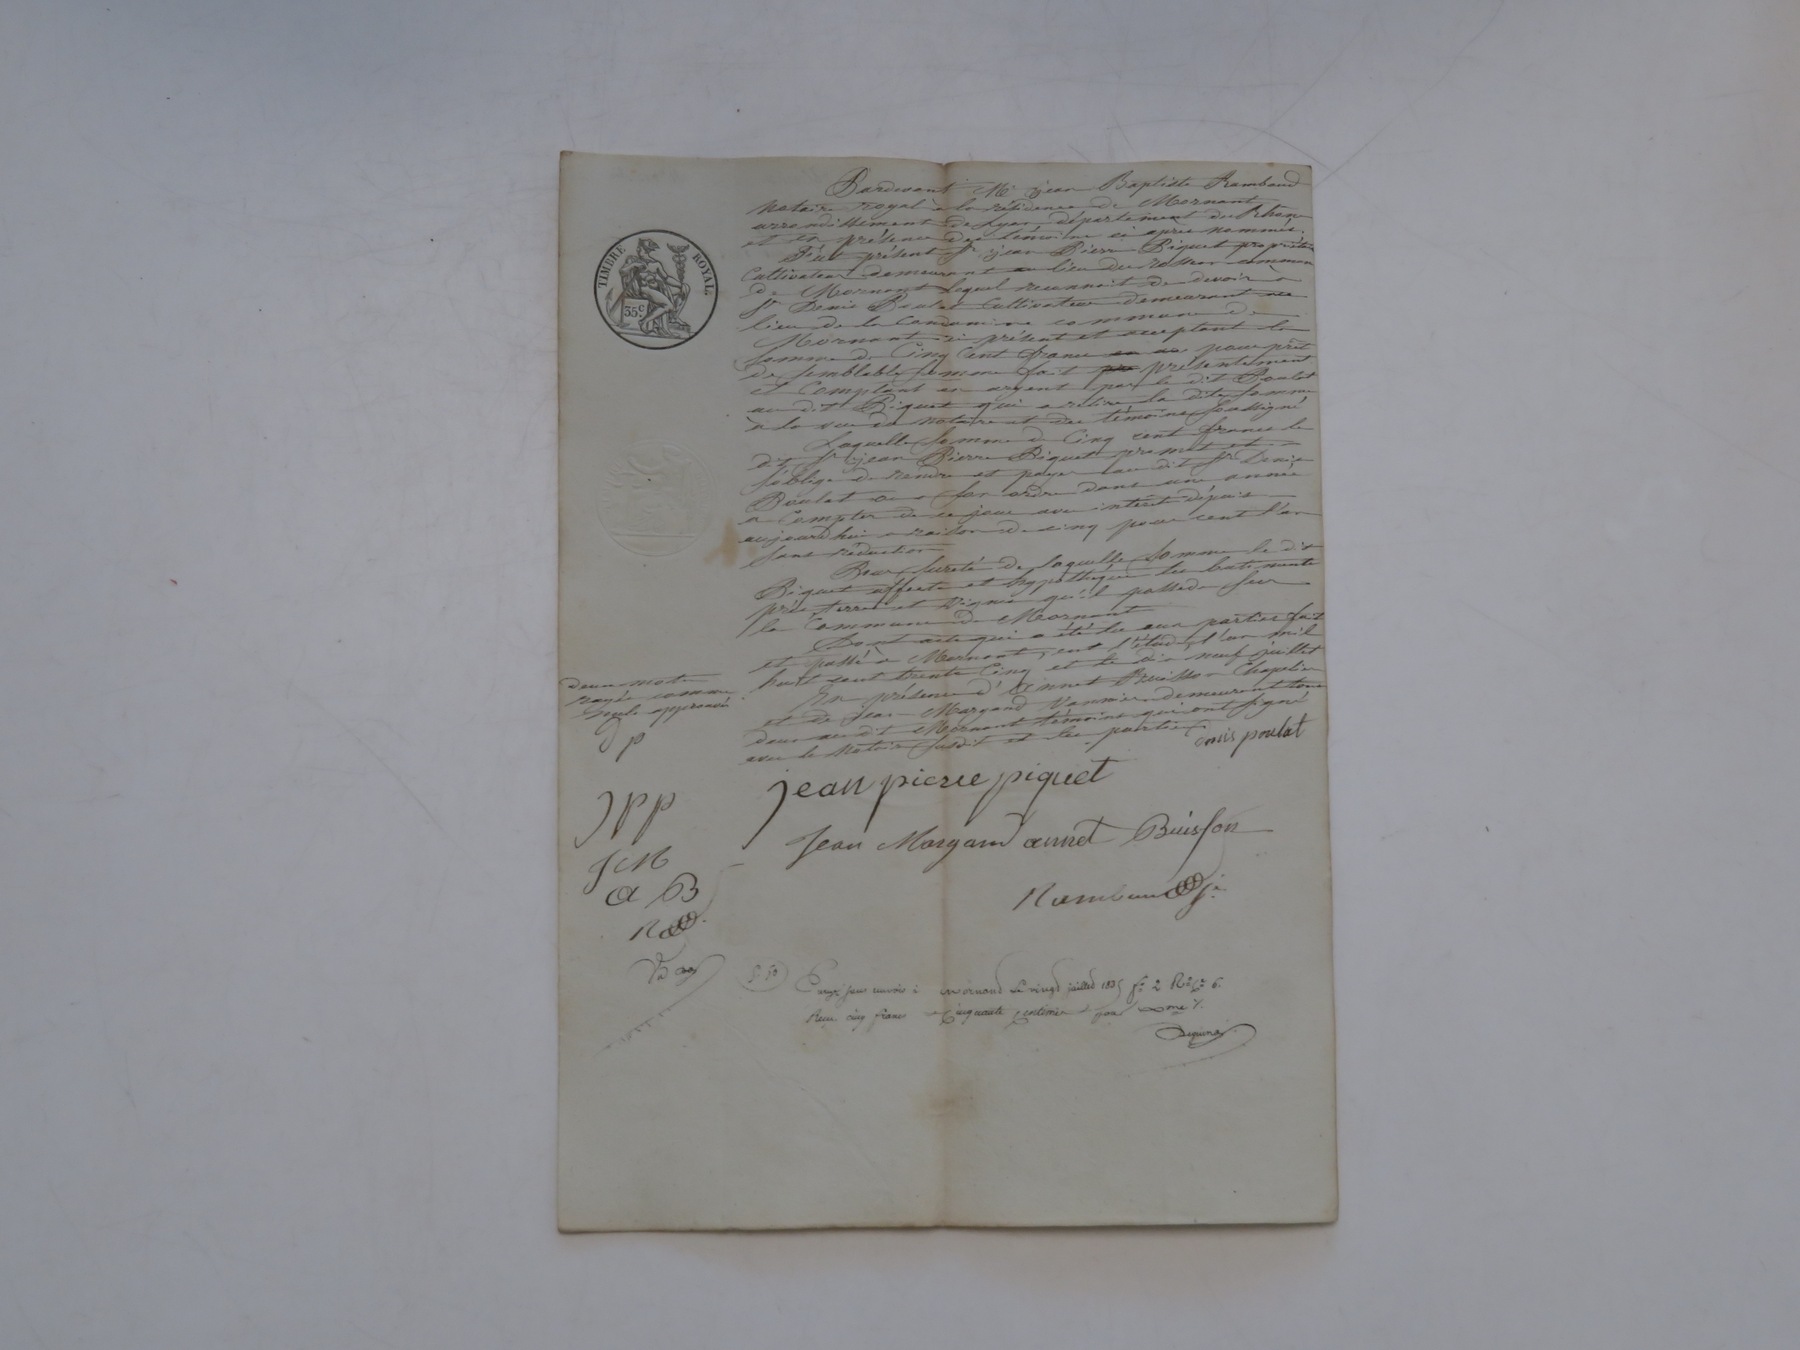 Pardevant Me jean Baptiste Rambaud
Notaire royal à la résidence de Mornant
arrondissement de Lyon, département du Rhone
et en présence des témoins ci après nommés,
Fut présent Sr jean Pierre Piquet propriétaire
Cultivateur demeurant au lieu du commune
de Mornant lequel reconnait de devoir à
Sr Denis Poulat Cultivateur demeurant au
lieu de la Condamine commune de
Mornant ci présent et acceptant la
somme de Cinq Cent francs pour prêt
de semblable somme fait présentement
et Comptant en argent par le dit Poulat
au dit Piquet qui a retiré la dite somme
à la vue du notaire et des témoins soussignés
Laquelle somme de Cinq cent francs le
dit Sr jean Pierre Piquet promet et
s'oblige de rendre et payer au dit Sr Denis
Poulat ou à son ordre dans une année
à Compter de ce jour avec intérêt depuis
aujourdhui à raison de cinq pour cent l'an
sans réduction
Pour sureté de laquelle somme le dit
Piquet affecte et hypothèque les batiments
prés, terres et vignes qu'il possède sur
la Commune de Mornant
Dont acte qui a été lu aux parties fait
et passé à Mornant, en l'étude, l'an mil
huit cent trente Cinq et le dix neuf juillet
En présence d'annet Buisson Chapelier
et de Jean Margand Vannier demeurant tous
deux au dit Mornant témoins qui ont signé
avec le Notaire susdit et les parties.
denis poulat
deux mots
rayés comme
nuls approuvés
D p
jean pierre piquet
jpp
Jean Margand annet Buisson
JM
a B
Rambaud
Ra
Enregistré sans renvois à Mornand le vingt juillet 1835 fo 2 Ro Co 6.
Recu cinq francs Cinquante Centimes pour
TIMBRE ROYAL
35 C.